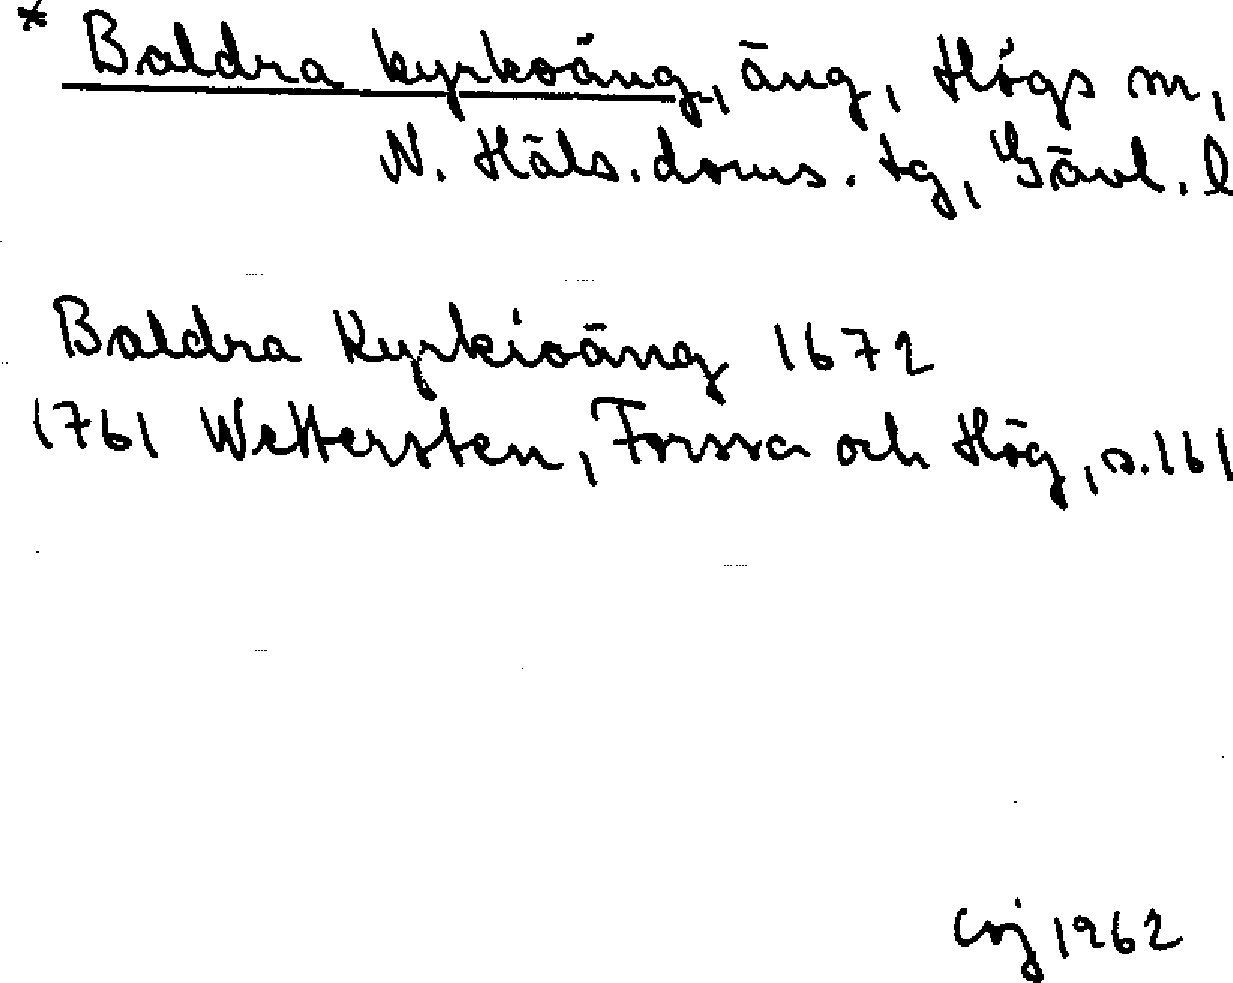 * Baldra kyrkoäng, äng, Högs sn,
N. Häls. doms. tg, Gävl. l
Baldra Kyrkioäng 1672
1761 Wettersten, Forssa och Hög, s. 161
1962